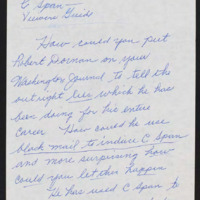 C Span
Viewers Guide
How could you put
Robert Dornan on your
Washington Journal to tell the
outright lies which he has
been doing for his entire
career How could he use
black mail to induce C Span
and more surprising how
could you let this happen
He has used C Span to